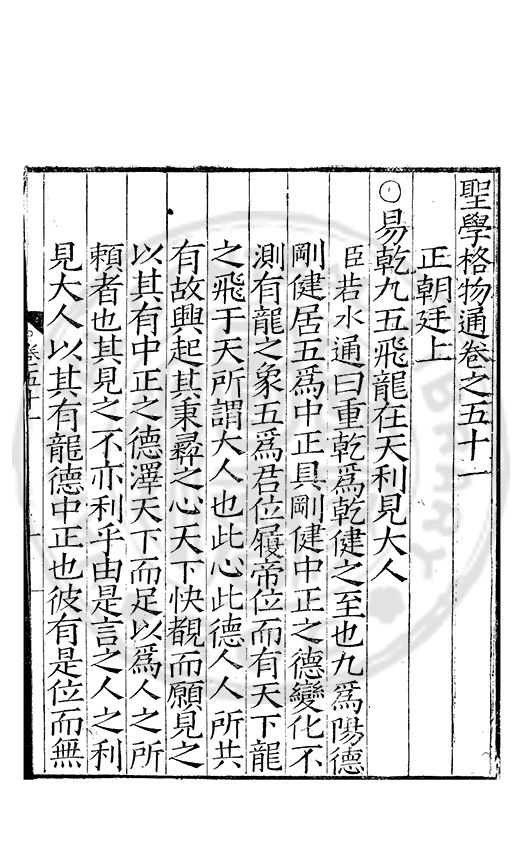 聖學格物通卷之五十一
正朝廷上
○易乾九五飛龍在天利見大人
臣若水通曰重乾爲乾健之至也九爲陽德
剛健居五爲中正具剛健中正之德變化不
測有龍之象五爲君位履帝位而有天下龍
之飛于天所謂大人也此心此德人人所共
有故興起其秉彝之心天下快覩而願見之
以其有中正之德澤天下而足以爲人之所
賴者也其見之不亦利乎由是言之人之利
見大人以其有龍德中正也彼有是位而無
卷五十一
一